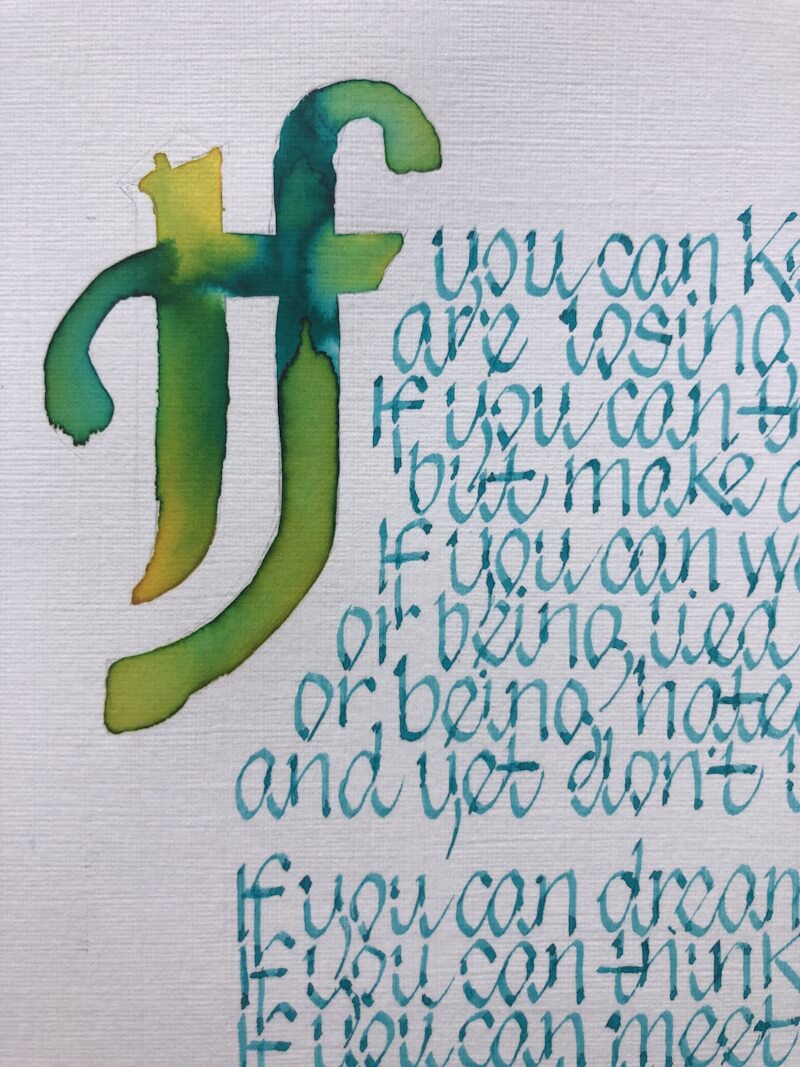 If you can ke
are losing
If you can th
but make a
If you can w
or being lied
or being hated
and yet don't l
If you can dream
If you can think
If you can meet